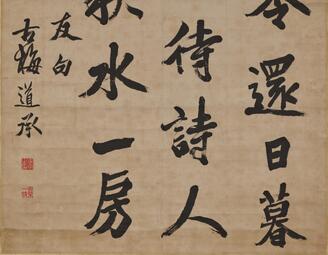 還日暮
待詩人
秋水一房
友句
古梅道承